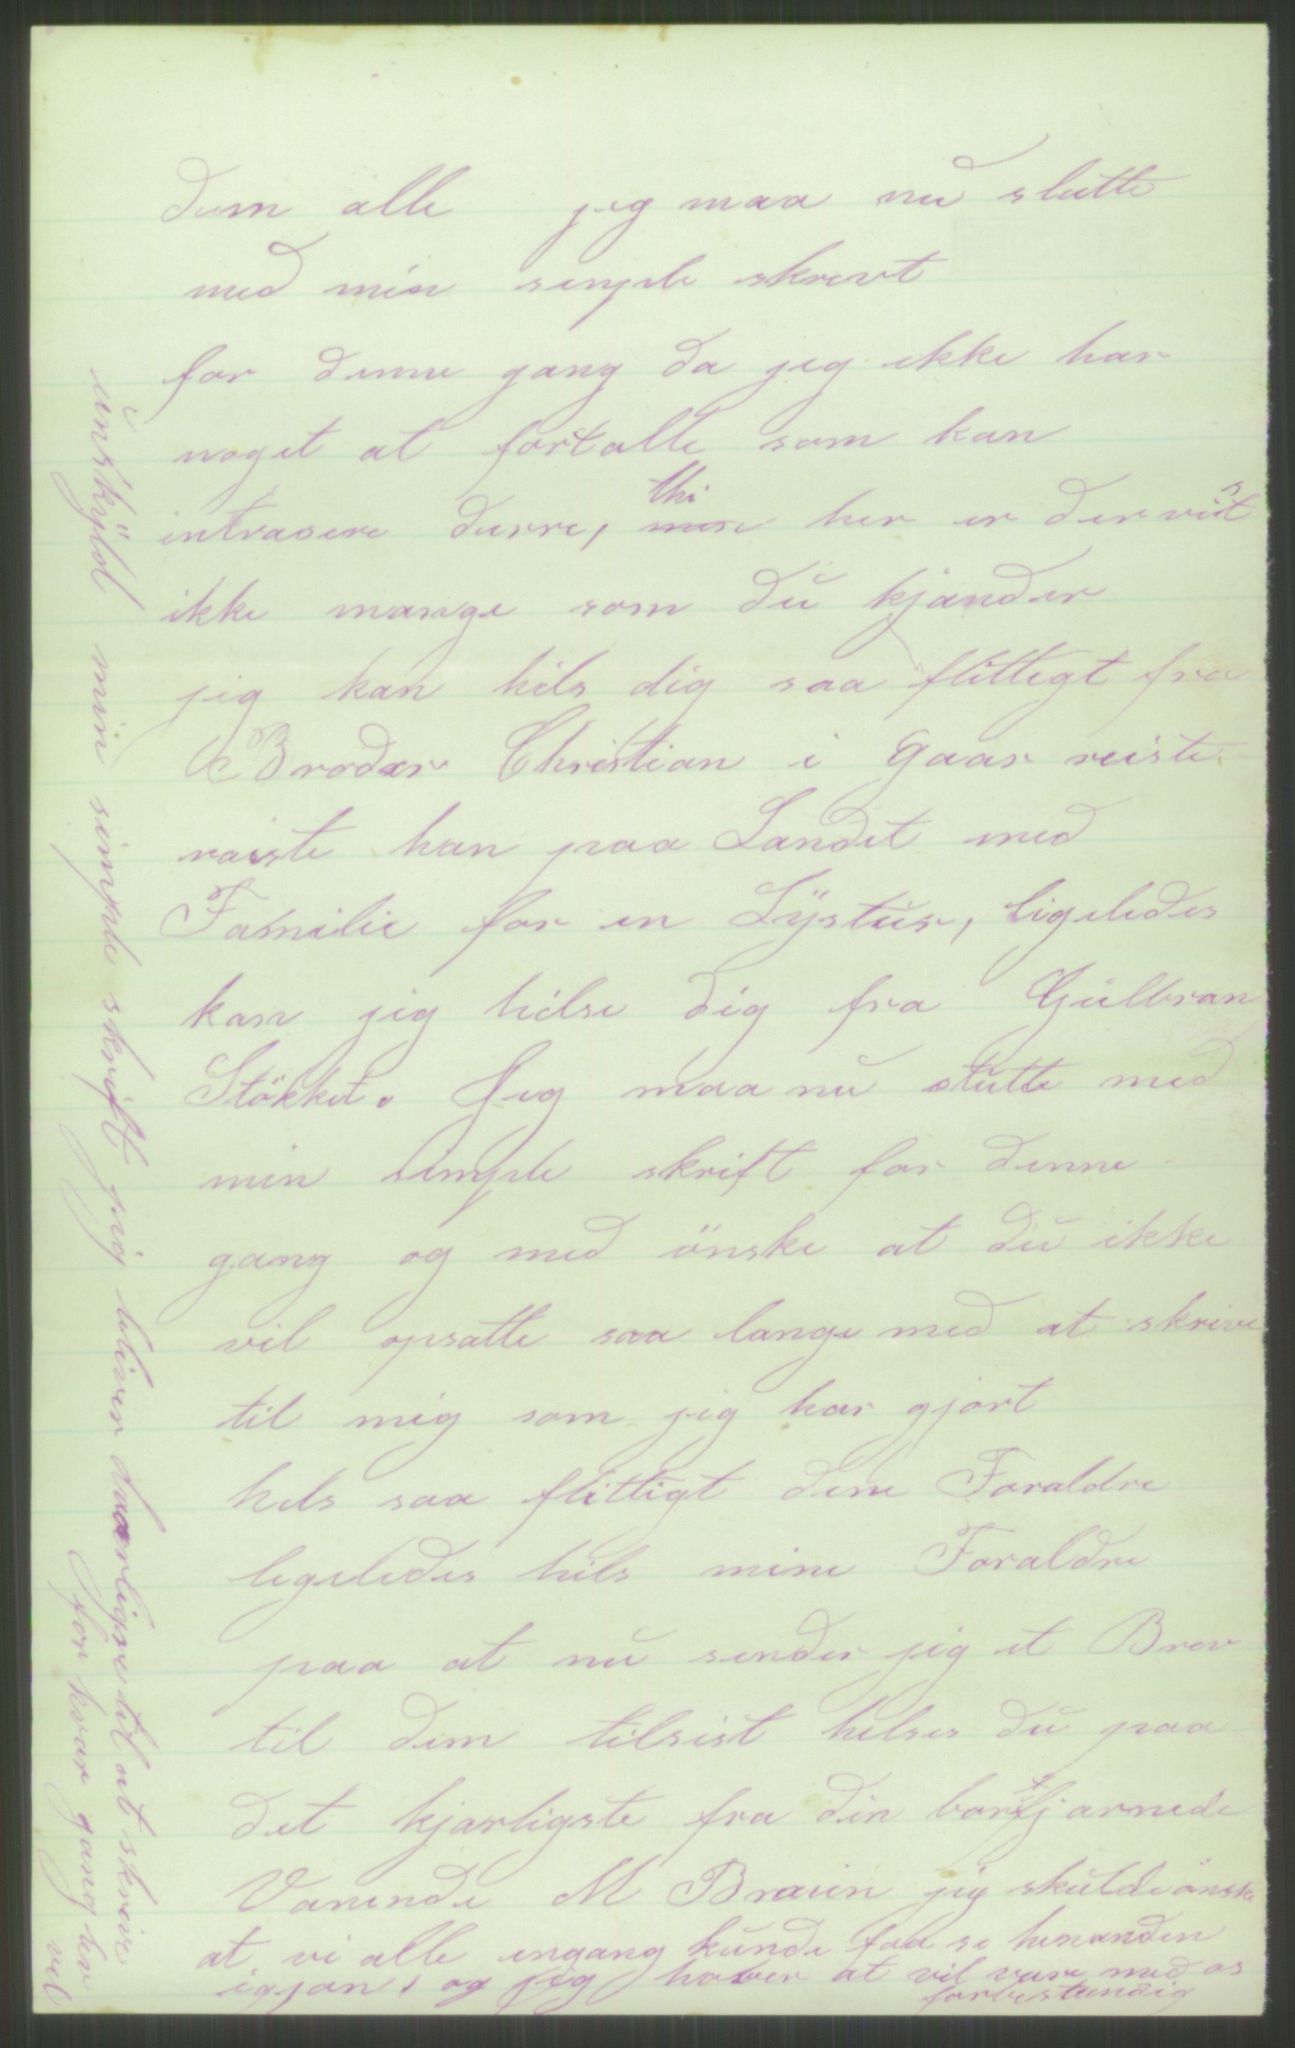 dem alle jeg maa nu slutte
med min simple skrevt
for denne gang da jeg ikke har
noget at fortalle som kan
intrasere derre, thi her er der vist
ikke mange som du kjander
jeg kan hils dig saa flittigt fra
Broder Christian i Gaar reiste
raiste han paa Landet med
Familie for en Lystur, ligeledes
kan jeg hilse dig fra Gulbran
Stökket. Jeg maa nu slutte med
min simple skrift for denne
gang og med önske at du ikke
vil opsatte saa lange med at skrive
til mig som jeg har gjort
hels saa flittigt dine Foraldre
legeledes hils mine Foraldre
paa at nu sender jeg et Brev
til dem tilsist helses du paa
det kjarligste fra din bortfjarnede
Vaninde M Braien jeg skulde önske
at vi alle engang kunde faa se henanden
igjan, og jeg haber at vil vare med os
forbestandig
unskyld min simple skrift jeg bliver daarligre til at skrive
for hvar gang lev
vel